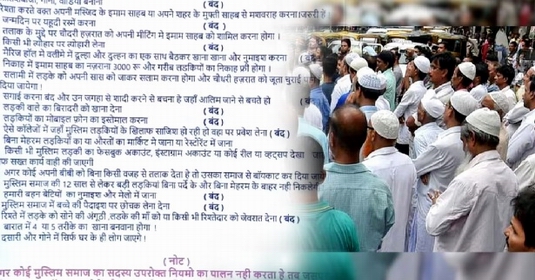 रिश्ता करते वक्त अपनी मस्जिद के इमाम साहब या अपने शहर के मुफ्ती साहब से मशवराह करना।जरुरी है।
जन्मदिन पर यहूदी रस्मे करना ( बंद )
तलाक के मुद्दे पर चौदरी हज़रात को अपनी मीटिंग मे इमाम साहब को शामिल करना होगा ।
किसी भी त्योहार पर त्योहारी लेना ( बंद )
मैरिज हॉल में वलीमे में दूल्हा और दुल्हन का एक साथ बैठकर खाना खाना और नुमाइश करना
निकाह में इमाम साहब का नज़राना 3000 रू और गरीब लडकियों का निकाह फ्री होगा ।
सलामी में लड़के को अपनी सास को जाकर सलाम करना होगा और चौधरी हज़रात को जूता चुराई
दिया जायेगा ।
सगाई करना बंद और उन जगहा से शादी करने से बचना है जहाँ आलिम जाने से बचते हो
लड़की वाले का बिरादरी को खाना देना ( बंद )
लड़कियों का मोबाइल फ़ोन का इस्तेमाल करना ( बंद )
ऐसे कॉलेजों में जहाँ मुस्लिम लड़कियों के खिलाफ साजिश हो रही हो वहा पर प्रवेश लेना ( बंद )
बिना मेहरम लड़कियों का या औरतों का मार्किट में जाना या रेस्टोरेंट में जाना
किसी भी मुस्लिम लड़की का फेसबुक अकाउंट, इंस्टाग्राम अकाउंट या कोई रील या व्हट्सप देखा
सख्त कार्य वाही की जाएगी
अगर कोई अपनी बीबी को बिना किसी वजह से तलाक देता हे तो उसका समाज से बॉयकाट कर दिया
मुस्लिम समाज की 12 साल से लेकर बड़ी लडकियां बिना पर्दे के और बिना मेहरम के बाहर नही निकलेगी
हमारी बहन बेटियों का नुमाइश और मेलों में जाना ( बंद )
मुस्लिम समाज में बच्चे की पैदाइश पर छोचक लेना देना ( बंद )
रिश्ते में लड़के को सोने की अंगूठी ,लड़के की माँ को या किसी भी रिश्तेदार को जेवरात देना । ( बंद )
बारात में 4 या 5 तरीके का खाना बनवाना होगा ।
दसारी और गोने में सिर्फ घर के ही लोग जाएंगे ।
( नोट )
अगर कोई मुस्लिम समाज का सदस्य उपरोक्त नियमो का पालन नही करता हे तब